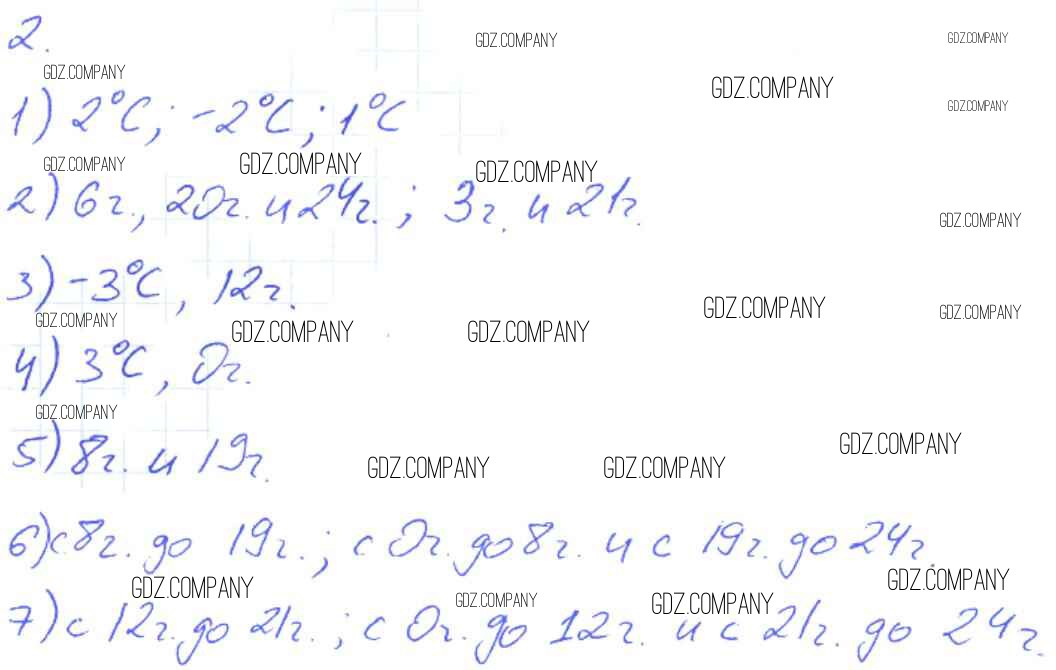 2.
GDZ.COMPANY GDZ.COMPANY
GDZ.COMPANY GDZ.COMPANY GDZ.COMPANY
1) 2°С; -2°С; 1°С
GDZ.COMPANY GDZ.COMPANY GDZ.COMPANY
2) 6г., 20г. и 24г.; 3г. и 21г.
GDZ.COMPANY
3) -3°С, 12г.
GDZ.COMPANY GDZ.COMPANY GDZ.COMPANY GDZ.COMPANY GDZ.COMPANY
4) 3°С, 0г.
GDZ.COMPANY
5) 8г. и 19г.
GDZ.COMPANY GDZ.COMPANY GDZ.COMPANY
6) с 8г. до 19г.; с 0г. до 8г. и с 19г. до 24г.
GDZ.COMPANY GDZ.COMPANY GDZ.COMPANY GDZ.COMPANY
7) с 12г. до 21г.; с 0г. до 12г. и с 21г. до 24г.